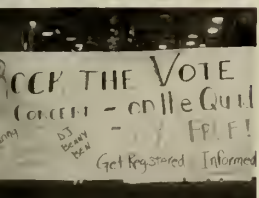 ROCK THE VOTE
CONCERT - on the Quad
DJ
BENNY
BEN
- FREE!
Get Registered Informed